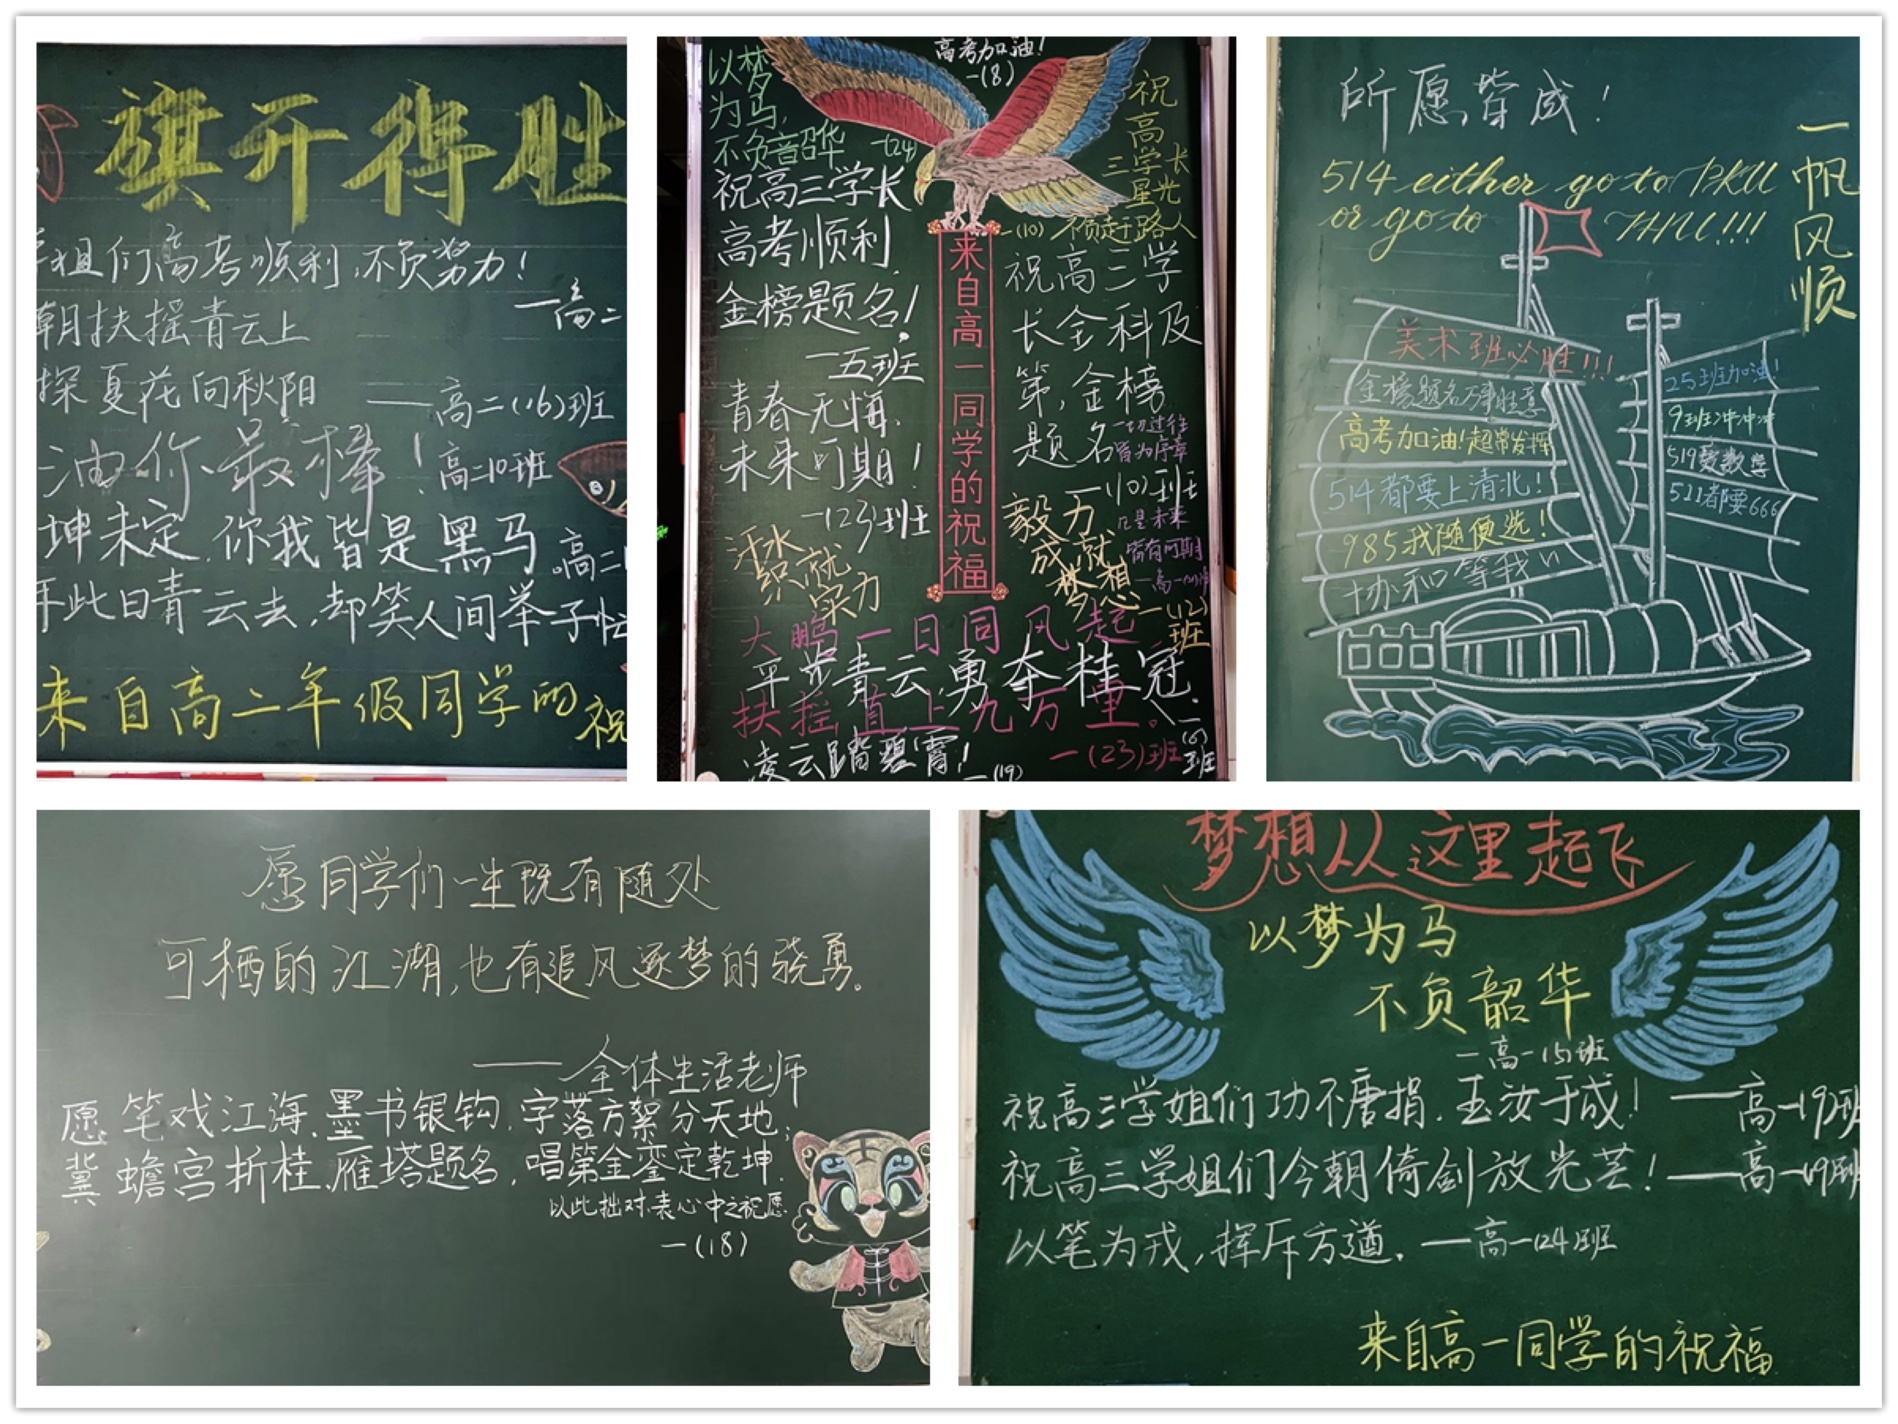 旗开得胜
学姐们高考顺利,不负努力!
一高二
朝扶摇青云上
探夏花向秋阳
——高二(16)班
油你最棒!
高二10班
坤未定,你我皆是黑马
高二
年此日青云去,却笑人间举子忙
来自高二年级同学的祝
高考加油!
-(8)
以梦
为马,
不负韶华
-(24)
祝高三学长
高考顺利,
金榜题名!
一五班
青春无悔,
未来可期!
-(23)班
汗水
织就
实力
来自高一同学的祝福
祝
高
三学长
星光
不负赶路人
-(10)
祝高三学
长金科及
第,金榜
题名
-(10)班
一切过往
皆为序章
凡是未来
皆有可期
毅力
成就
梦想
-(12)
班
大鹏一日同风起
平步青云,勇夺桂冠.
-(6)
班
扶摇直上九万里。
-(23)班
凌云踏碧霄!
-(19)
所愿皆成!
514 either go to PKU
or go to THU!!!
一帆风顺
美术班必胜!!!
金榜题名万事胜意
高考加油!超常发挥
514都要上清北!
985我随便选!
协和等我
25班加油!
9班冲冲冲
519爱数学
511都要666
愿同学们一生既有随处
可栖的江湖,也有追风逐梦的骁勇。
——全体生活老师
愿 笔戏江海,墨书银钩,字落方絮分天地;
冀 蟾宫折桂,雁塔题名,唱第金銮定乾坤.
以此拙对表心中之祝愿
-(18)
梦想从这里起飞
以梦为马
不负韶华
一高一15班
祝高三学姐们功不唐捐,玉汝于成!——高一19班
祝高三学姐们今朝倚剑放光芒!——高一19班
以笔为戎,挥斥方遒.——高一24班
来自高一同学的祝福